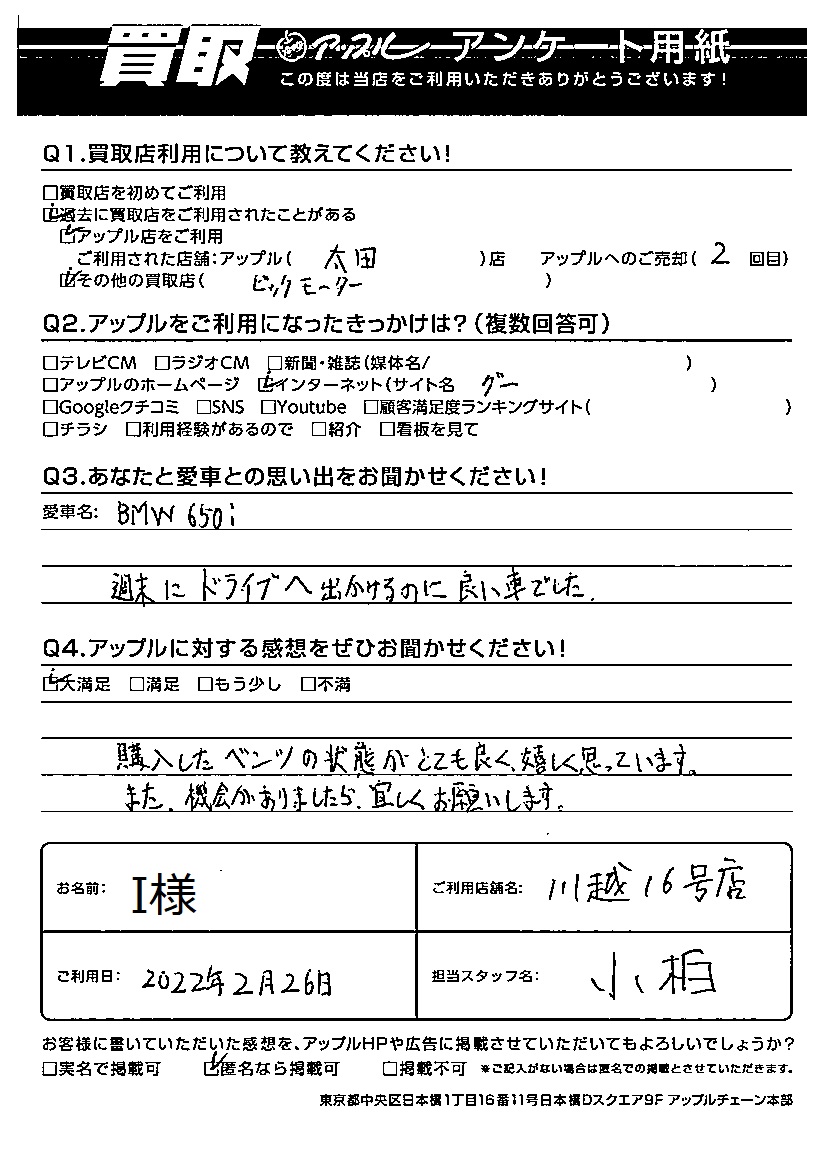 買取 アップル アンケート用紙
この度は当店をご利用いただきありがとうございます!
Q1.買取店利用について教えてください!
□買取店を初めてご利用
☑過去に買取店をご利用されたことがある
☑アップル店をご利用
ご利用された店舗:アップル( 太田 )店 アップルへのご売却( 2 回目)
☑その他の買取店( ビックモーター )
Q2.アップルをご利用になったきっかけは?(複数回答可)
□テレビCM □ラジオCM □新聞・雑誌(媒体名/ )
□アップルのホームページ ☑インターネット(サイト名 グー )
□Googleクチコミ □SNS □Youtube □顧客満足度ランキングサイト( )
□チラシ □利用経験があるので □紹介 □看板を見て
Q3.あなたと愛車との思い出をお聞かせください!
愛車名: BMW 650i
週末にドライブへ出かけるのに良い車でした.
Q4.アップルに対する感想をぜひお聞かせください!
☑大満足 □満足 □もう少し □不満
購入したベンツの状態がとても良く、嬉しく思っています。
また、機会がありましたら、宜しくお願いします。
お名前: I様 ご利用店舗名: 川越16号店
ご利用日: 2022年2月26日 担当スタッフ名: 小柏
お客様に書いていただいた感想を、アップルHPや広告に掲載させていただいてもよろしいでしょうか?
□実名で掲載可 ☑匿名なら掲載可 □掲載不可 ※ご記入がない場合は匿名での掲載とさせていただきます。
東京都中央区日本橋1丁目16番11号日本橋Dスクエア9F アップルチェーン本部